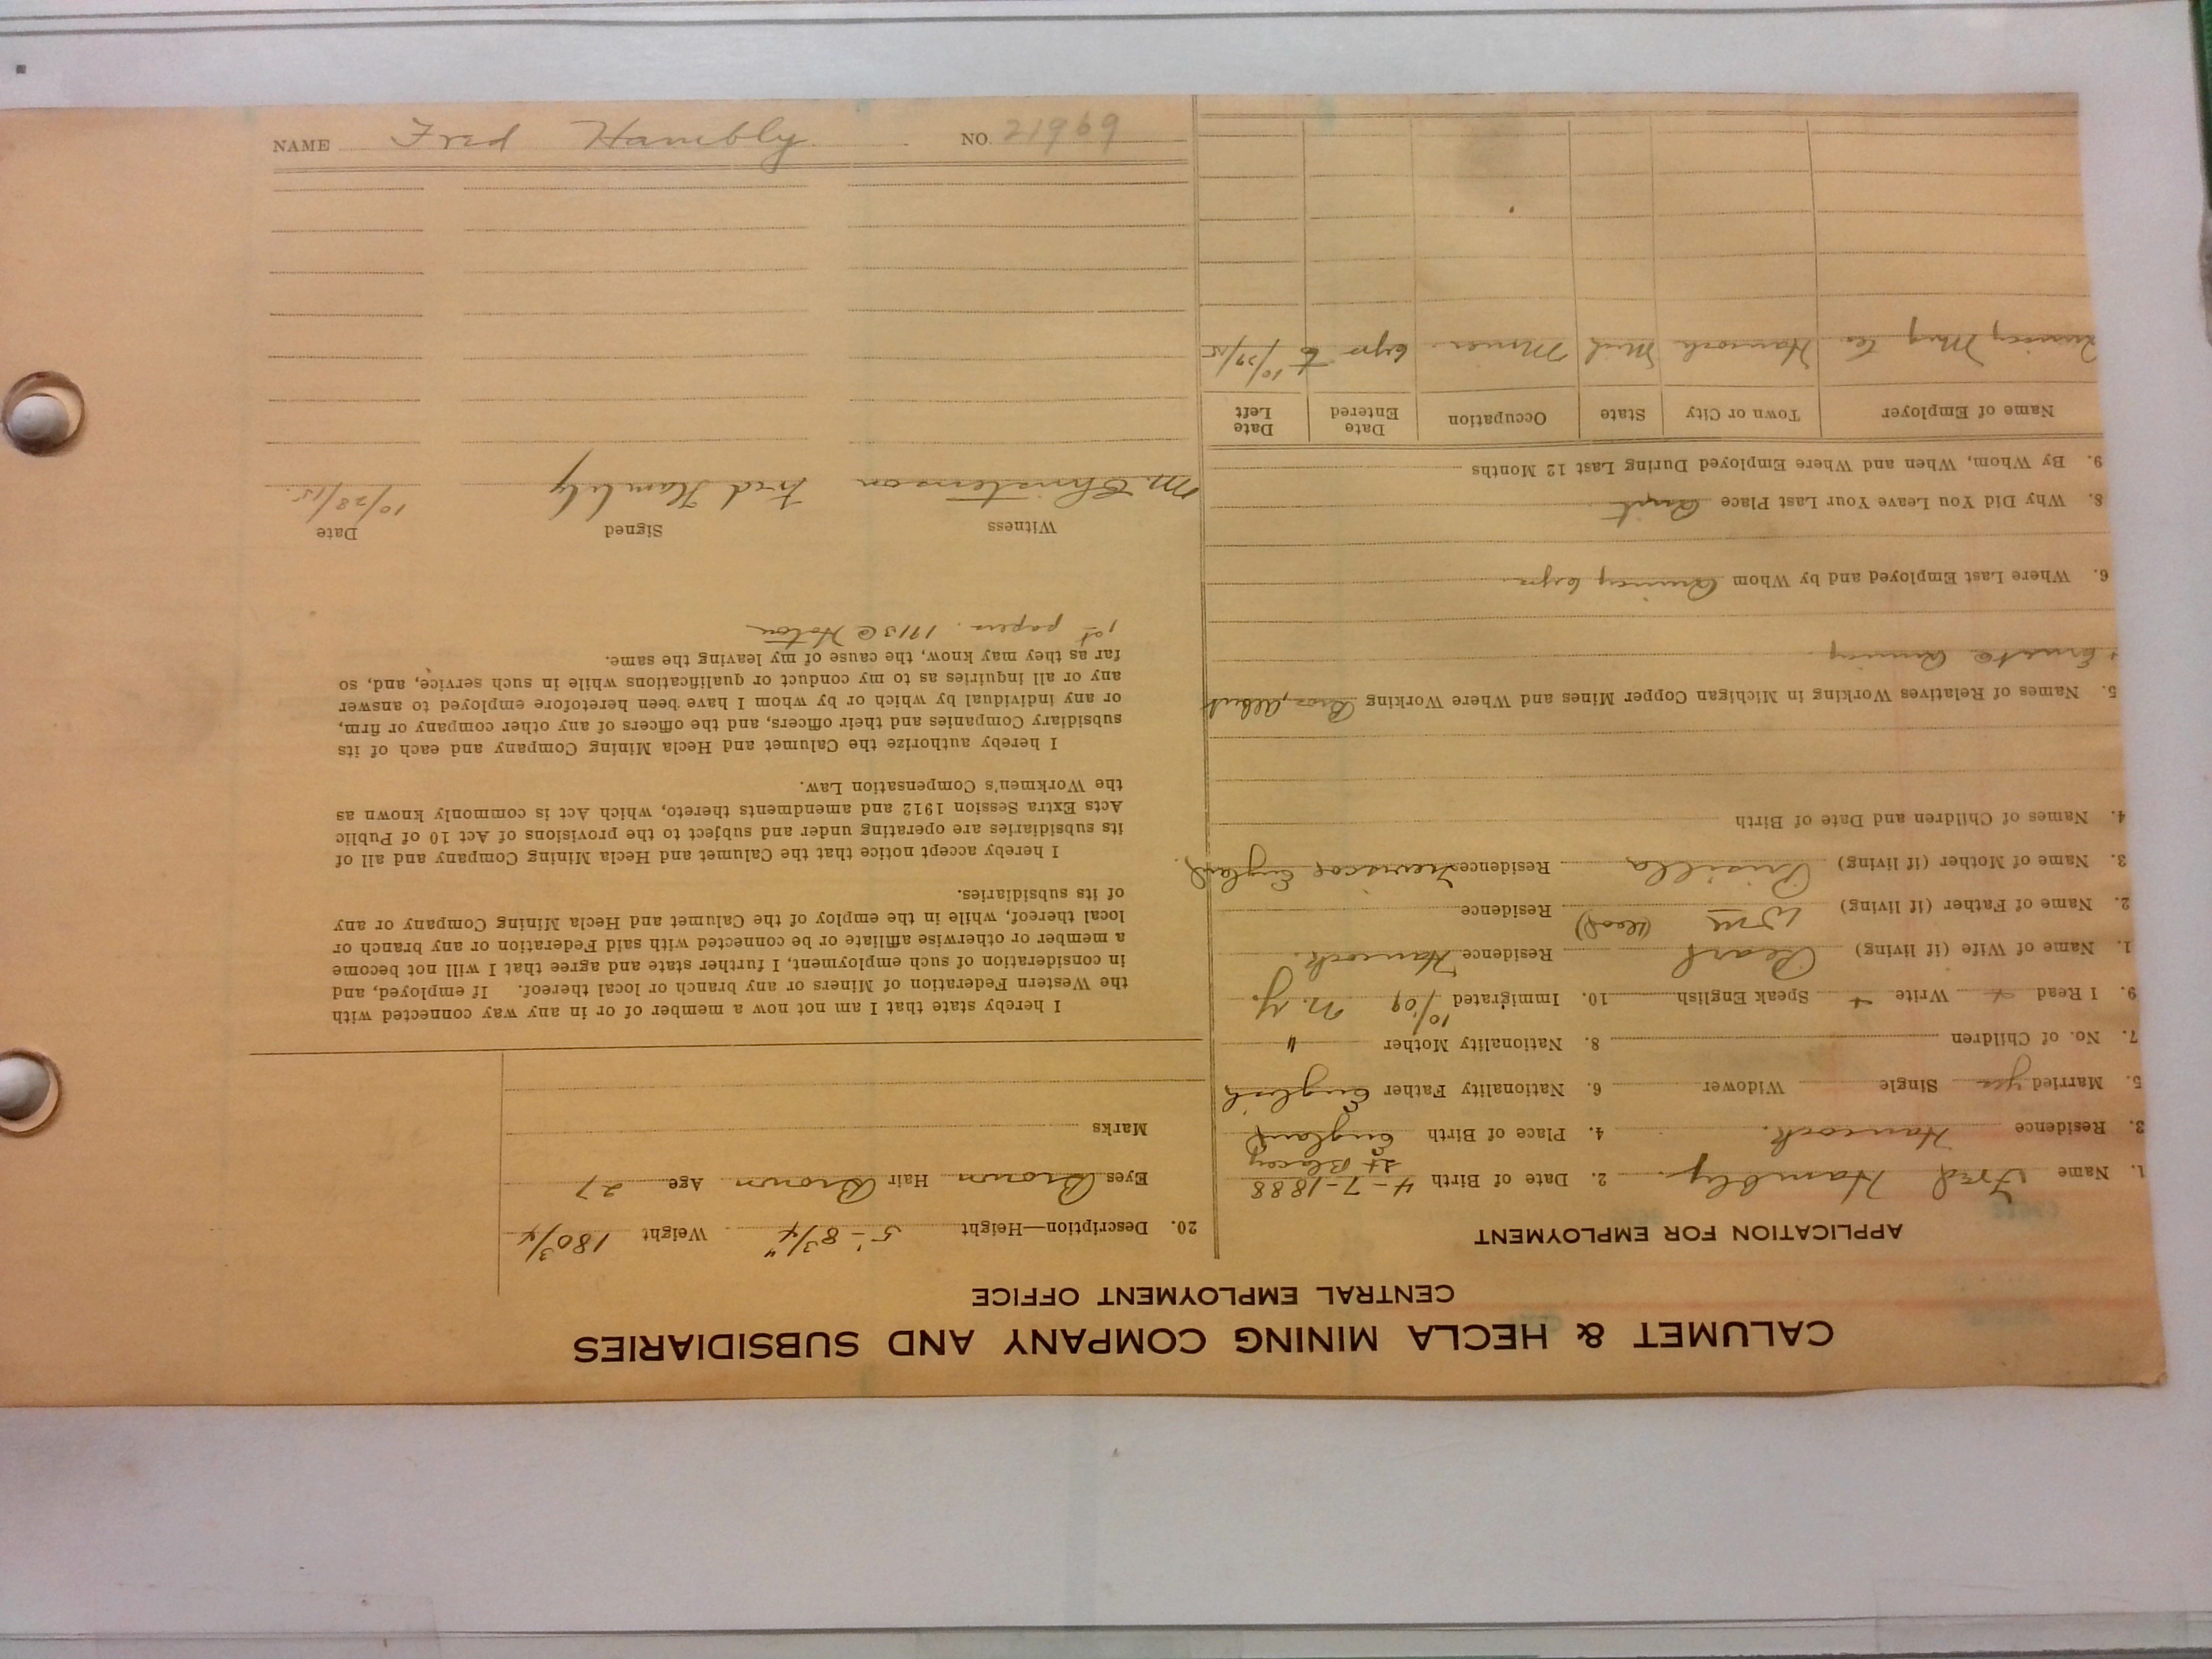 CALUMET & HECLA MINING COMPANY AND SUBSIDIARIES
CENTRAL EMPLOYMENT OFFICE
APPLICATION FOR EMPLOYMENT
1. Name Fred Hambly. 2. Date of Birth 4-7-1888
St Blazey
3. Residence Hancock. 4. Place of Birth England
5. Married yes Single Widower 6. Nationality Father English
7. No. of Children 8. Nationality Mother "
9. I Read + Write + Speak English 10. Immigrated 10/09 N.Y.
1. Name of Wife (if living) Pearl Residence Hancock.
2. Name of Father (if living) Wm (dead) Residence
3. Name of Mother (if living) Prisilla Residence England
4. Names of Children and Date of Birth
5. Names of Relatives Working in Michigan Copper Mines and Where Working Bros, Albert
+ Ernest @ Quincy
6. Where Last Employed and by Whom Quincy 6yrs.
8. Why Did You Leave Your Last Place Quit
9. By Whom, When and Where Employed During Last 12 Months
Name of Employer Town or City State Occupation Date Entered Date Left
Quincy Mng Co Hancock Mich Miner 6yrs to 10/27/15
20. Description—Height 5'-8 3/4" Weight 180 3/4
Eyes Brown Hair Brown Age 27
Marks
I hereby state that I am not now a member of or in any way connected with
the Western Federation of Miners or any branch or local thereof. If employed, and
in consideration of such employment, I further state and agree that I will not become
a member or otherwise affiliate or be connected with said Federation or any branch or
local thereof, while in the employ of the Calumet and Hecla Mining Company or any
of its subsidiaries.
I hereby accept notice that the Calumet and Hecla Mining Company and all of
its subsidiaries are operating under and subject to the provisions of Act 10 of Public
Acts Extra Session 1912 and amendments thereto, which Act is commonly known as
the Workmen's Compensation Law.
I hereby authorize the Calumet and Hecla Mining Company and each of its
subsidiary Companies and their officers, and the officers of any other company or firm,
or any individual by which or by whom I have been heretofore employed to answer
any or all inquiries as to my conduct or qualifications while in such service, and, so
far as they may know, the cause of my leaving the same.
1st papers. 1913 @ Hoton
Witness Signed Date
M. Christenson Fred Hambly 10/28/15.
NAME Fred Hambly. NO. 21969